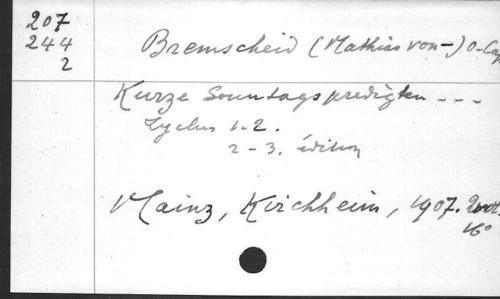 207
244
2
Bremscheid (Mathias von-) O. Cap
Kurze Sonntagspredigten ---
Zyclus 1-2.
2-3. édition
Mainz, Kirchheim, 1907. 2 vol.
16°